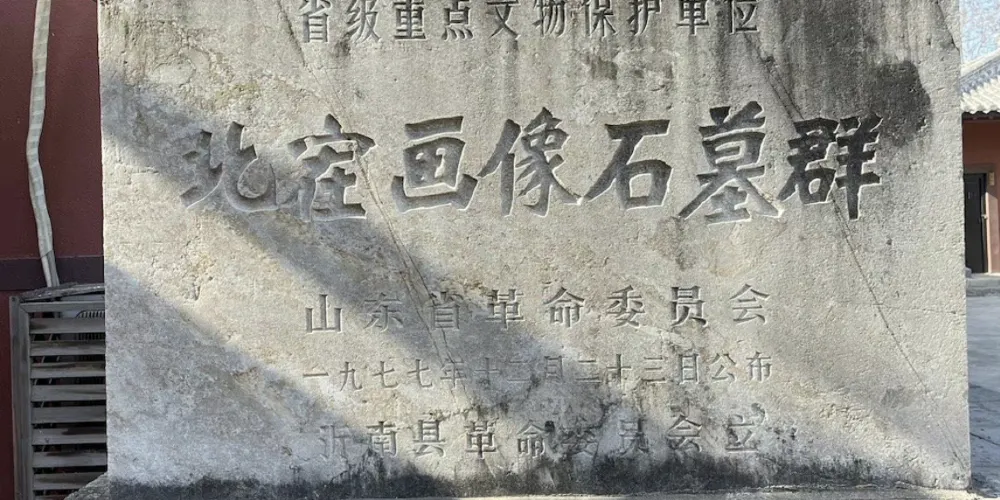 省级重点文物保护单位
北寨画像石墓群
山东省革命委员会
一九七七年十二月二十三日公布
沂南县革命委员会立